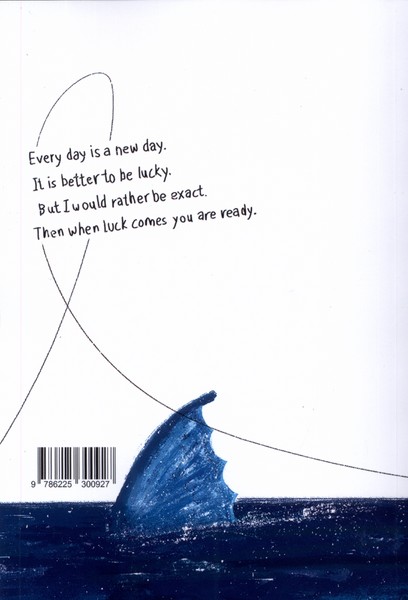 Every day is a new day.
It is better to be lucky.
But I would rather be exact.
Then when luck comes you are ready.
9 786225 300927